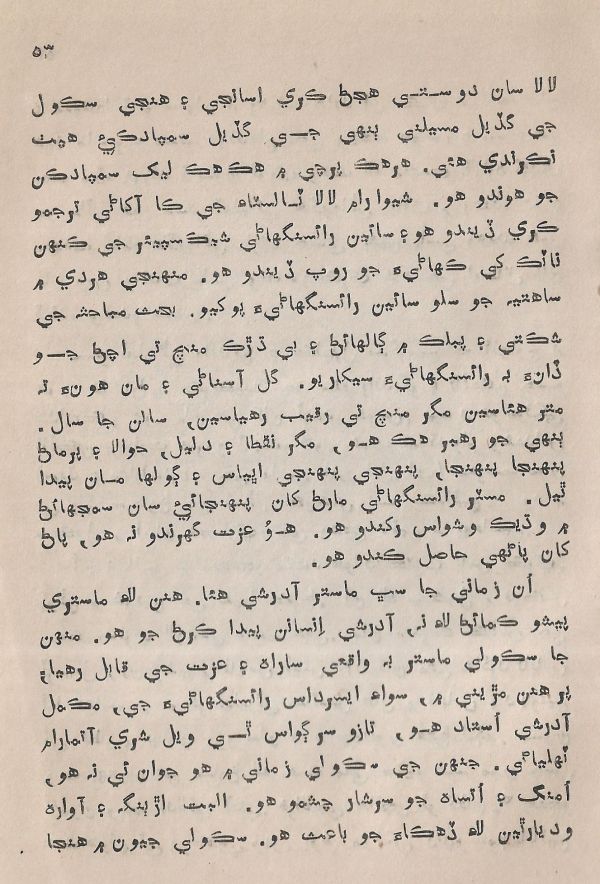 ٥٣
لالا سان دوستي هجڻ ڪري اسانجي ۽ هنجي سڪول
جي گڏيل مسيلني ٻنهي جي گڏيل سمپادڪيءَ هيٺ
نڪرندي هئي. هرهڪ پرچي ۾ هڪ هڪ ليک سمپادڪن
جو هوندو هو. شيوارام لالا ٽالسٽاءِ جي ڪا آکاڻي ترجمو
ڪري ڏيندو هو ۽ سائين رائسنگهاڻي شيڪسپيئر جي ڪنهن
ناٽڪ کي ڪهاڻيءَ جو روپ ڏيندو هو. منهنجي هردي ۾
ساهتيه جو سلو سائين رائسنگهاڻيءَ پوکيو. بحث مباحثه جي
شڪتي ۽ پبلڪ ۾ ڳالهائڻ ۽ بي ڌڙڪ منچ تي اچڻ جو
ڏانءُ به رائسنگهاڻيءَ سيکاريو. گل آسناڻي ۽ مان هونءَ ته
متر هئاسين مگر منچ تي رقيب رهياسين، سالن جا سال.
ٻنهي جو رهبر هڪ هو، مگر نقطا ۽ دليل، حوالا ۽ پرماڻ
پنهنجا پنهنجا، پنهنجي پنهنجي اڀياس ۽ ڳولها مان پيدا
ٿيل. مسٽر رائسنگهاڻي مارڻ کان پنهنجائيءَ سان سمجهائڻ
۾ وڌيڪ وشواس رکندو هو. هوُ عزت گهرندو نه هو، پاڻ
کان پاڻهي حاصل ڪندو هو.
اُن زماني جا سڀ ماستر آدرشي هئا. هنن لاءِ ماستري
پيشو ڪمائڻ لاءِ نہ، آدرشي اِنسان پيدا ڪرڻ جو هو. منهن
جا سڪولي ماستر به واقعي ساراه ۽ عزت جي قابل رهيا،
پر هنن مڙيني ۾، سواءِ ايسرداس رائسنگهاڻيءَ جي، مڪمل
آدرشي اُستاد هو، تازو سرڳواس ٿي ويل شري آتمارام
ٽهلياڻي. جنهن جي سڪولي زماني ۾ هو جوان ئي نه هو،
اُمنگ ۽ اُتساهه جو سرشار چشمو هو. البت اڙٻنگ ۽ آواره
وديارٿين لاءِ ڏهڪاءَ جو باعث هو. سڪولي جيون ۾ هنجا